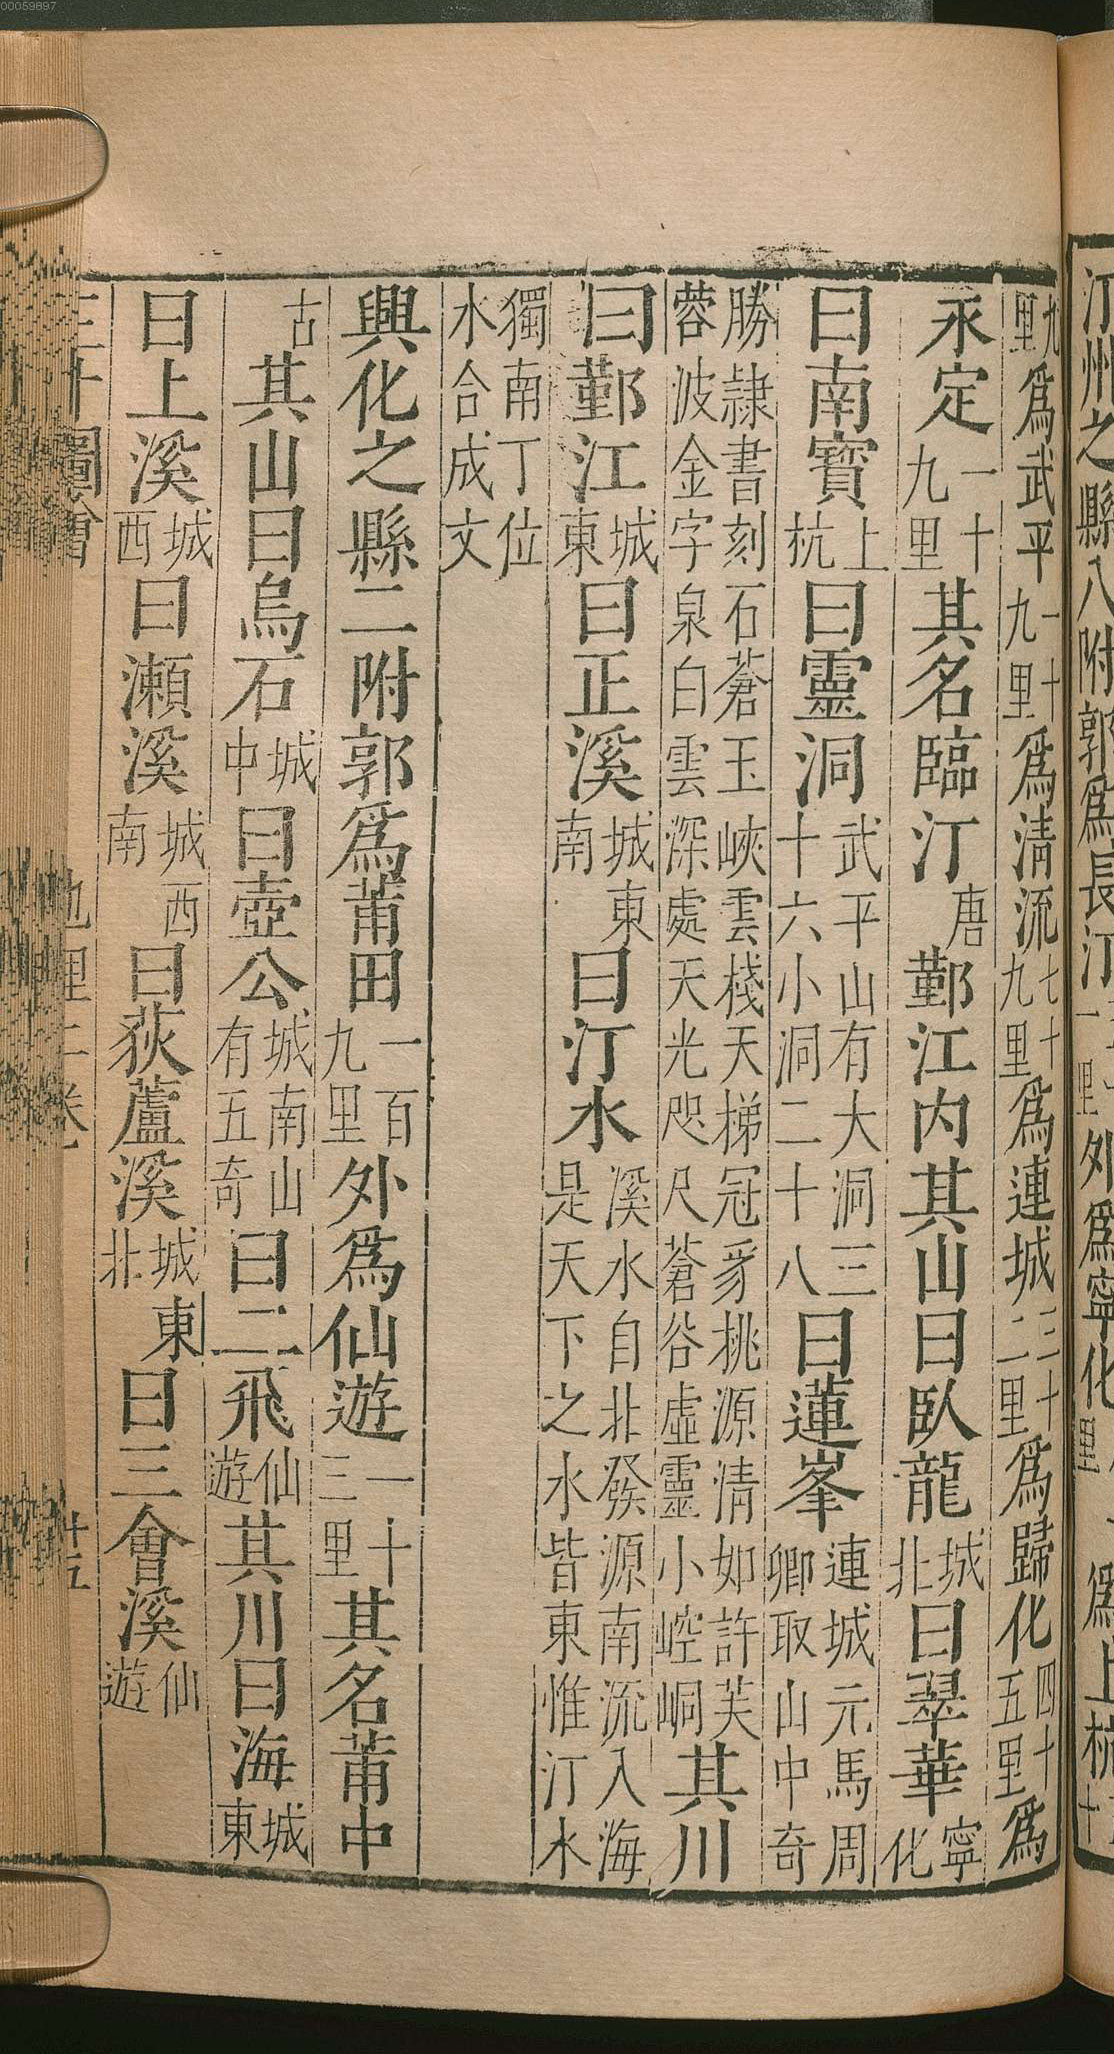 汀州之縣八附郭爲長汀外爲寧化里爲上杭
九里爲武平一十九里爲清流七十九里爲連城三十二里爲歸化四十五里爲
永定一十九里其名臨汀唐鄞江内其山曰臥龍城北曰翠華寧化
曰南寶上杭曰靈洞武平山有大洞三十六小洞二十八曰蓮峯連城元馬周卿取山中奇
勝隸書刻石蒼玉峽雲棧天梯冠豸挑源清如許芙蓉波金字泉白雲深處天光咫尺蒼谷虛靈小崆峒其川
曰鄞江城東曰正溪城東南曰汀水溪水自北發源南流入海是天下之水皆東惟汀水
獨南丁位水合成文
興化之縣二附郭爲莆田一百九里外爲仙遊一十三里其名莆中
古其山曰烏石城中曰壺公城南山有五奇曰二飛仙遊其川曰海城東
曰上溪城西曰瀬溪城西南曰荻蘆溪城東北曰三會溪仙遊
圖會
十五
00059897